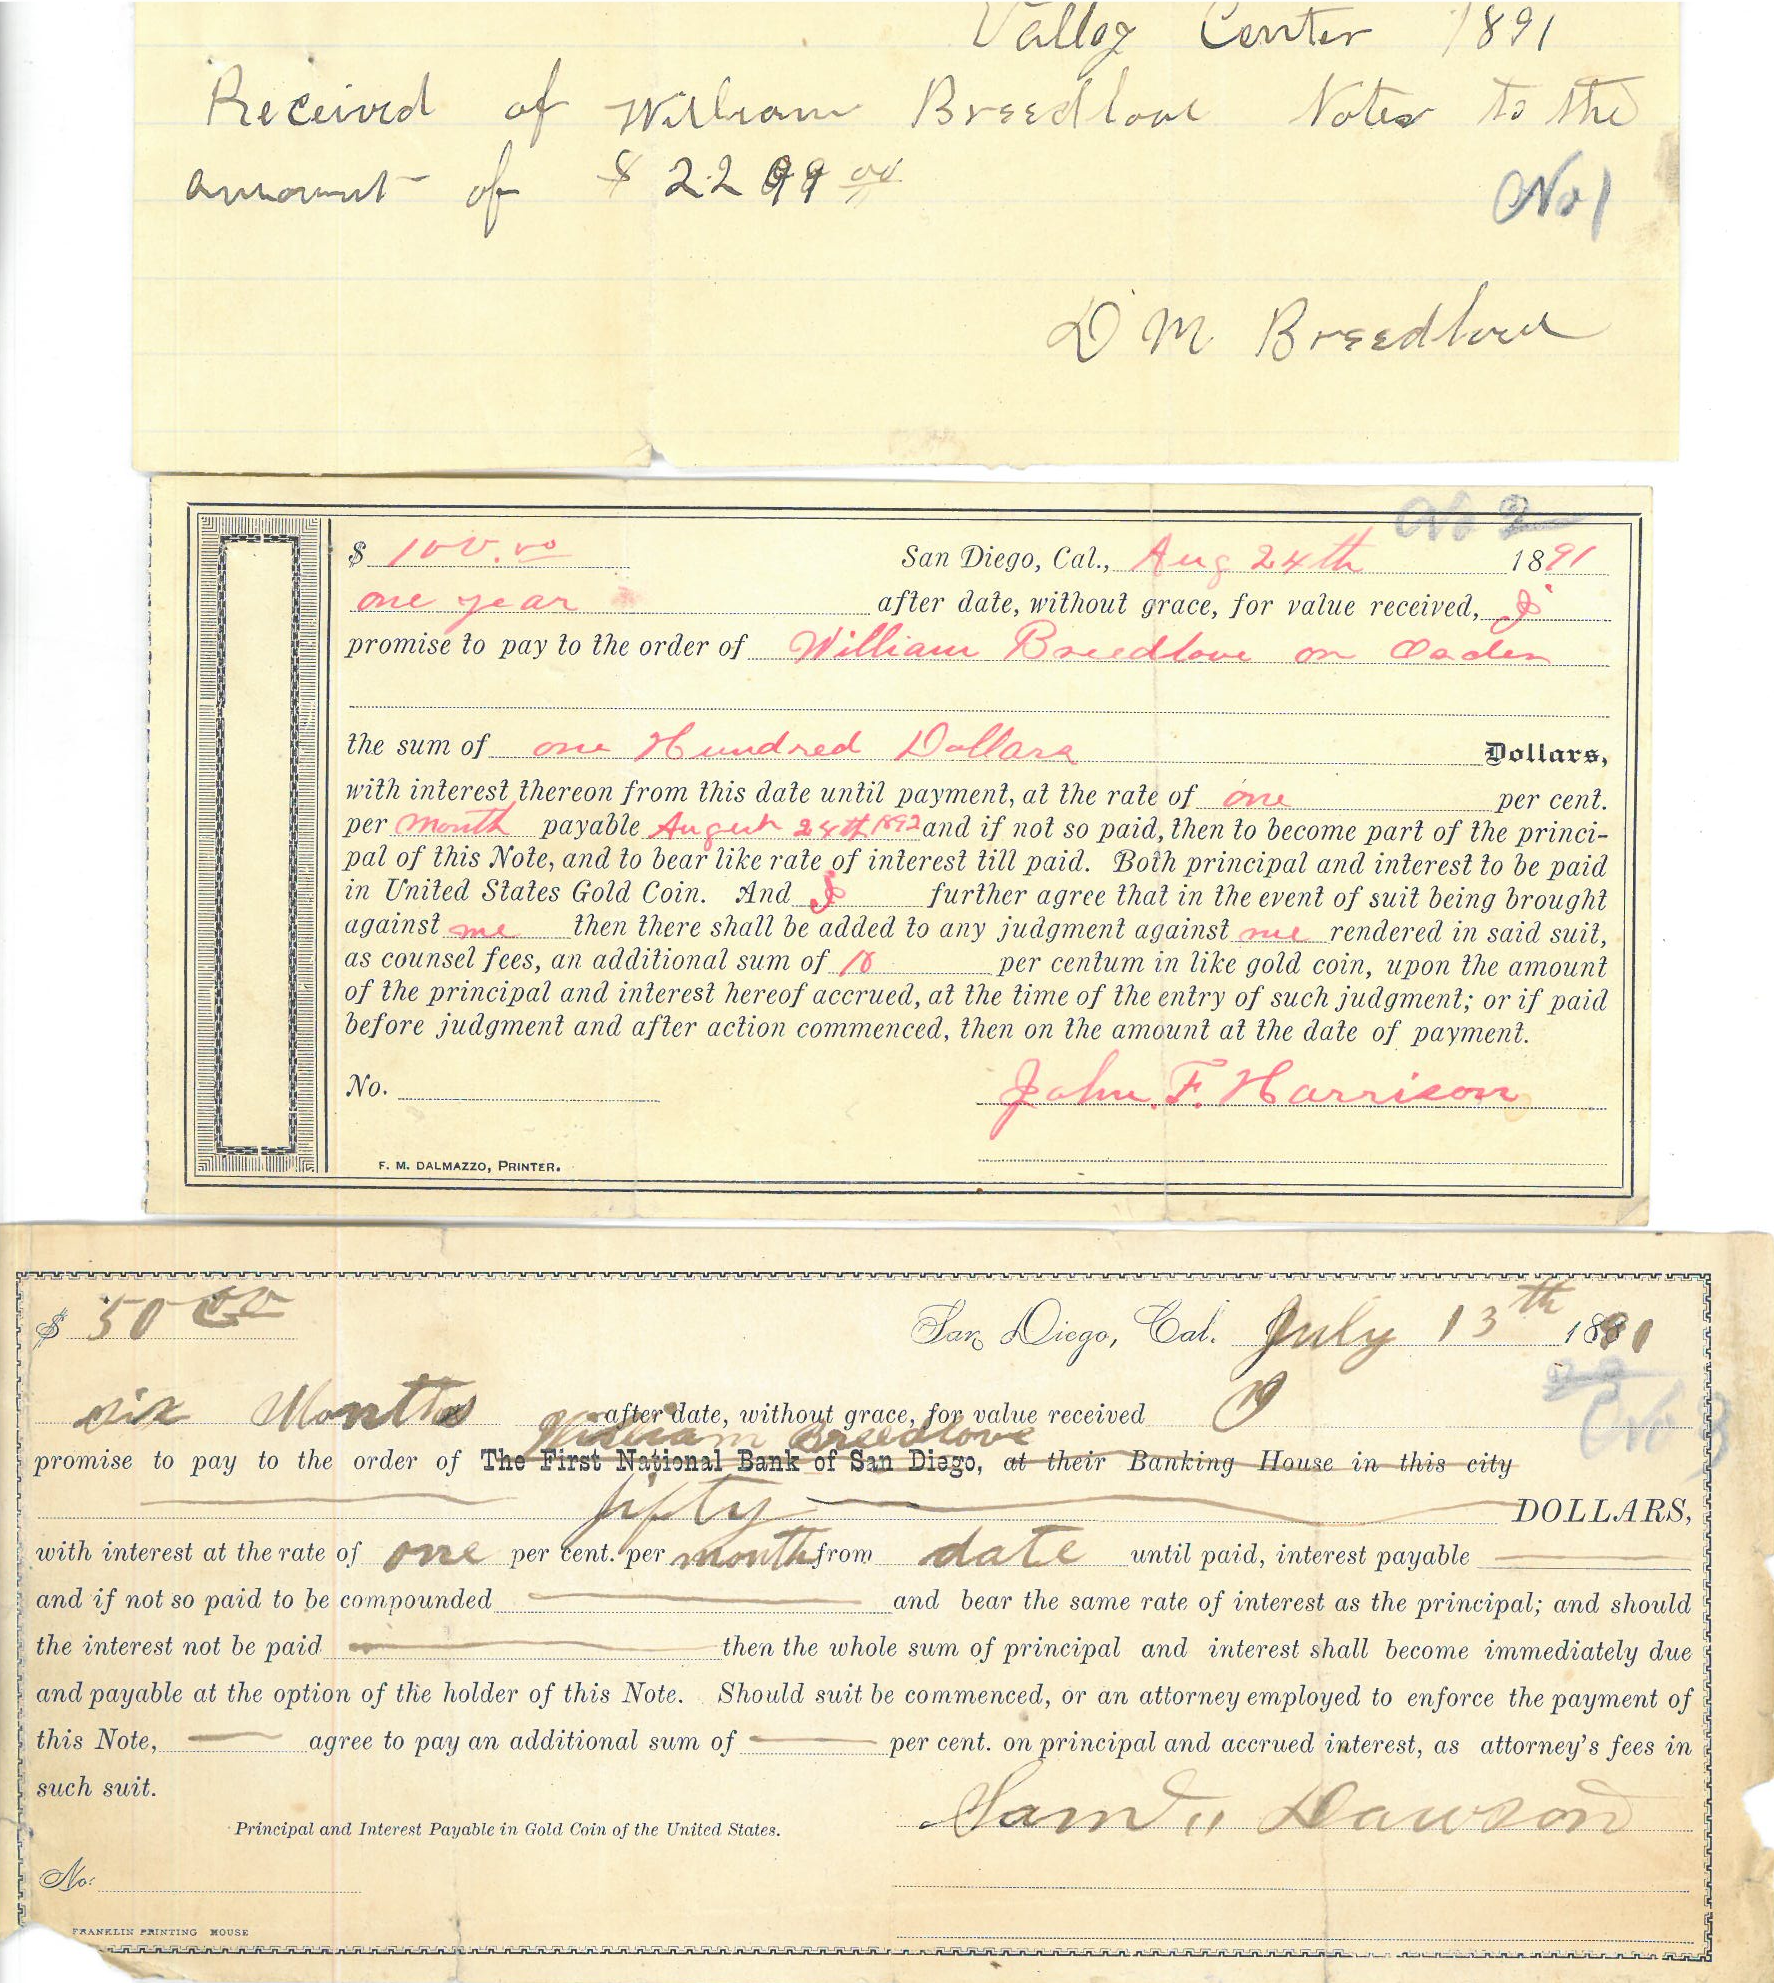 Valley Center 1891
Received of William Breedlove Notes to the
amount of $ 2299 00
No 1
D M Breedlove
No 2
$ 100.00 San Diego, Cal., Aug 24th 1891
one year after date, without grace, for value received, I
promise to pay to the order of William Breedlove or Oader
the sum of one Hundred Dollars Dollars,
with interest thereon from this date until payment, at the rate of one per cent.
per Month payable August 24th 1892 and if not so paid, then to become part of the princi-
pal of this Note, and to bear like rate of interest till paid. Both principal and interest to be paid
in United States Gold Coin. And I further agree that in the event of suit being brought
against me then there shall be added to any judgment against me rendered in said suit,
as counsel fees, an additional sum of 10 per centum in like gold coin, upon the amount
of the principal and interest hereof accrued, at the time of the entry of such judgment; or if paid
before judgment and after action commenced, then on the amount at the date of payment.
No. John. F. Harrison
F. M. DALMAZZO, PRINTER.
$ 50 00 San Diego, Cal. July 13th 1891
No 3
six Months after date, without grace, for value received I
William Breedlove
promise to pay to the order of The First National Bank of San Diego, at their Banking House in this city
fifty DOLLARS,
with interest at the rate of one per cent. per month from date until paid, interest payable
and if not so paid to be compounded and bear the same rate of interest as the principal; and should
the interest not be paid then the whole sum of principal and interest shall become immediately due
and payable at the option of the holder of this Note. Should suit be commenced, or an attorney employed to enforce the payment of
this Note, agree to pay an additional sum of per cent. on principal and accrued interest, as attorney's fees in
such suit.
Principal and Interest Payable in Gold Coin of the United States.
Sam'l Dawson
No.
FRANKLIN PRINTING HOUSE